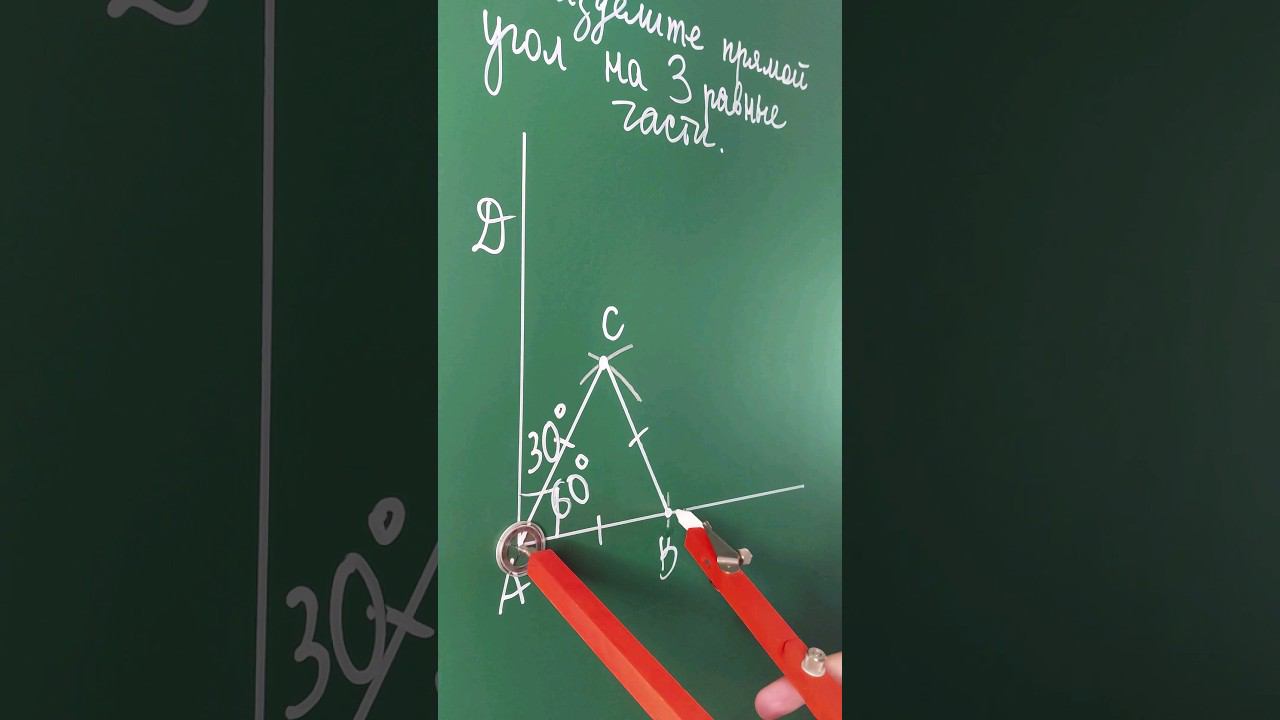 разделите прямой
угол на 3 равные
части.
D
C
30°
60°
B
A
30°